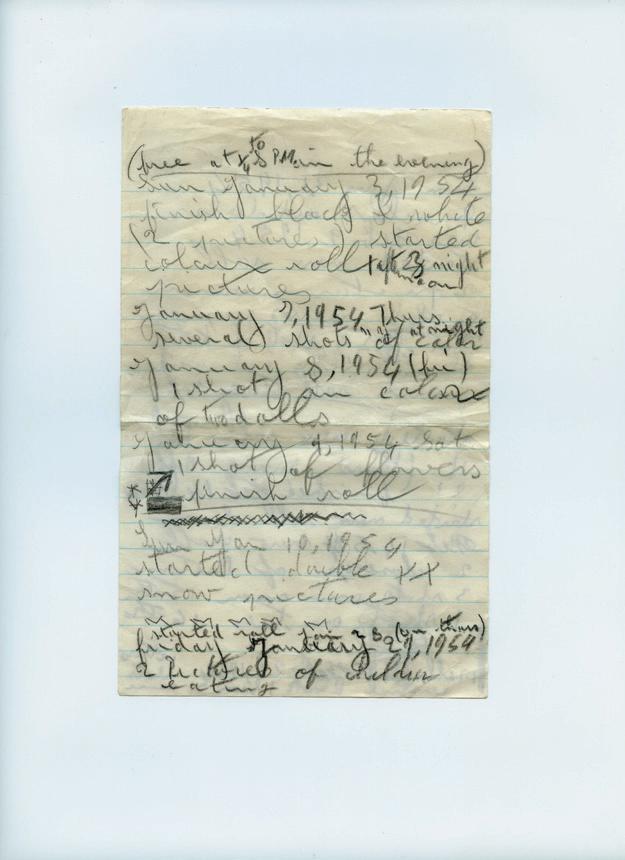 (free at 4 to 8 P.M. in the evening)
Sun January 3, 1954
finish black & white
(2 pictures) started
colour roll & night
afternoon
pictures
January 7, 1954 Thurs.
at night
several shots of color
January 8, 1954 (fri)
1 shot in color
of two dolls
January 9, 1954 Sat
1 shot of flowers
finish roll
Sun Jan 10, 1954
started double XX
snow pictures
started roll Jan 28 (on thurs)
friday January 29, 1954
2 pictures of
eating